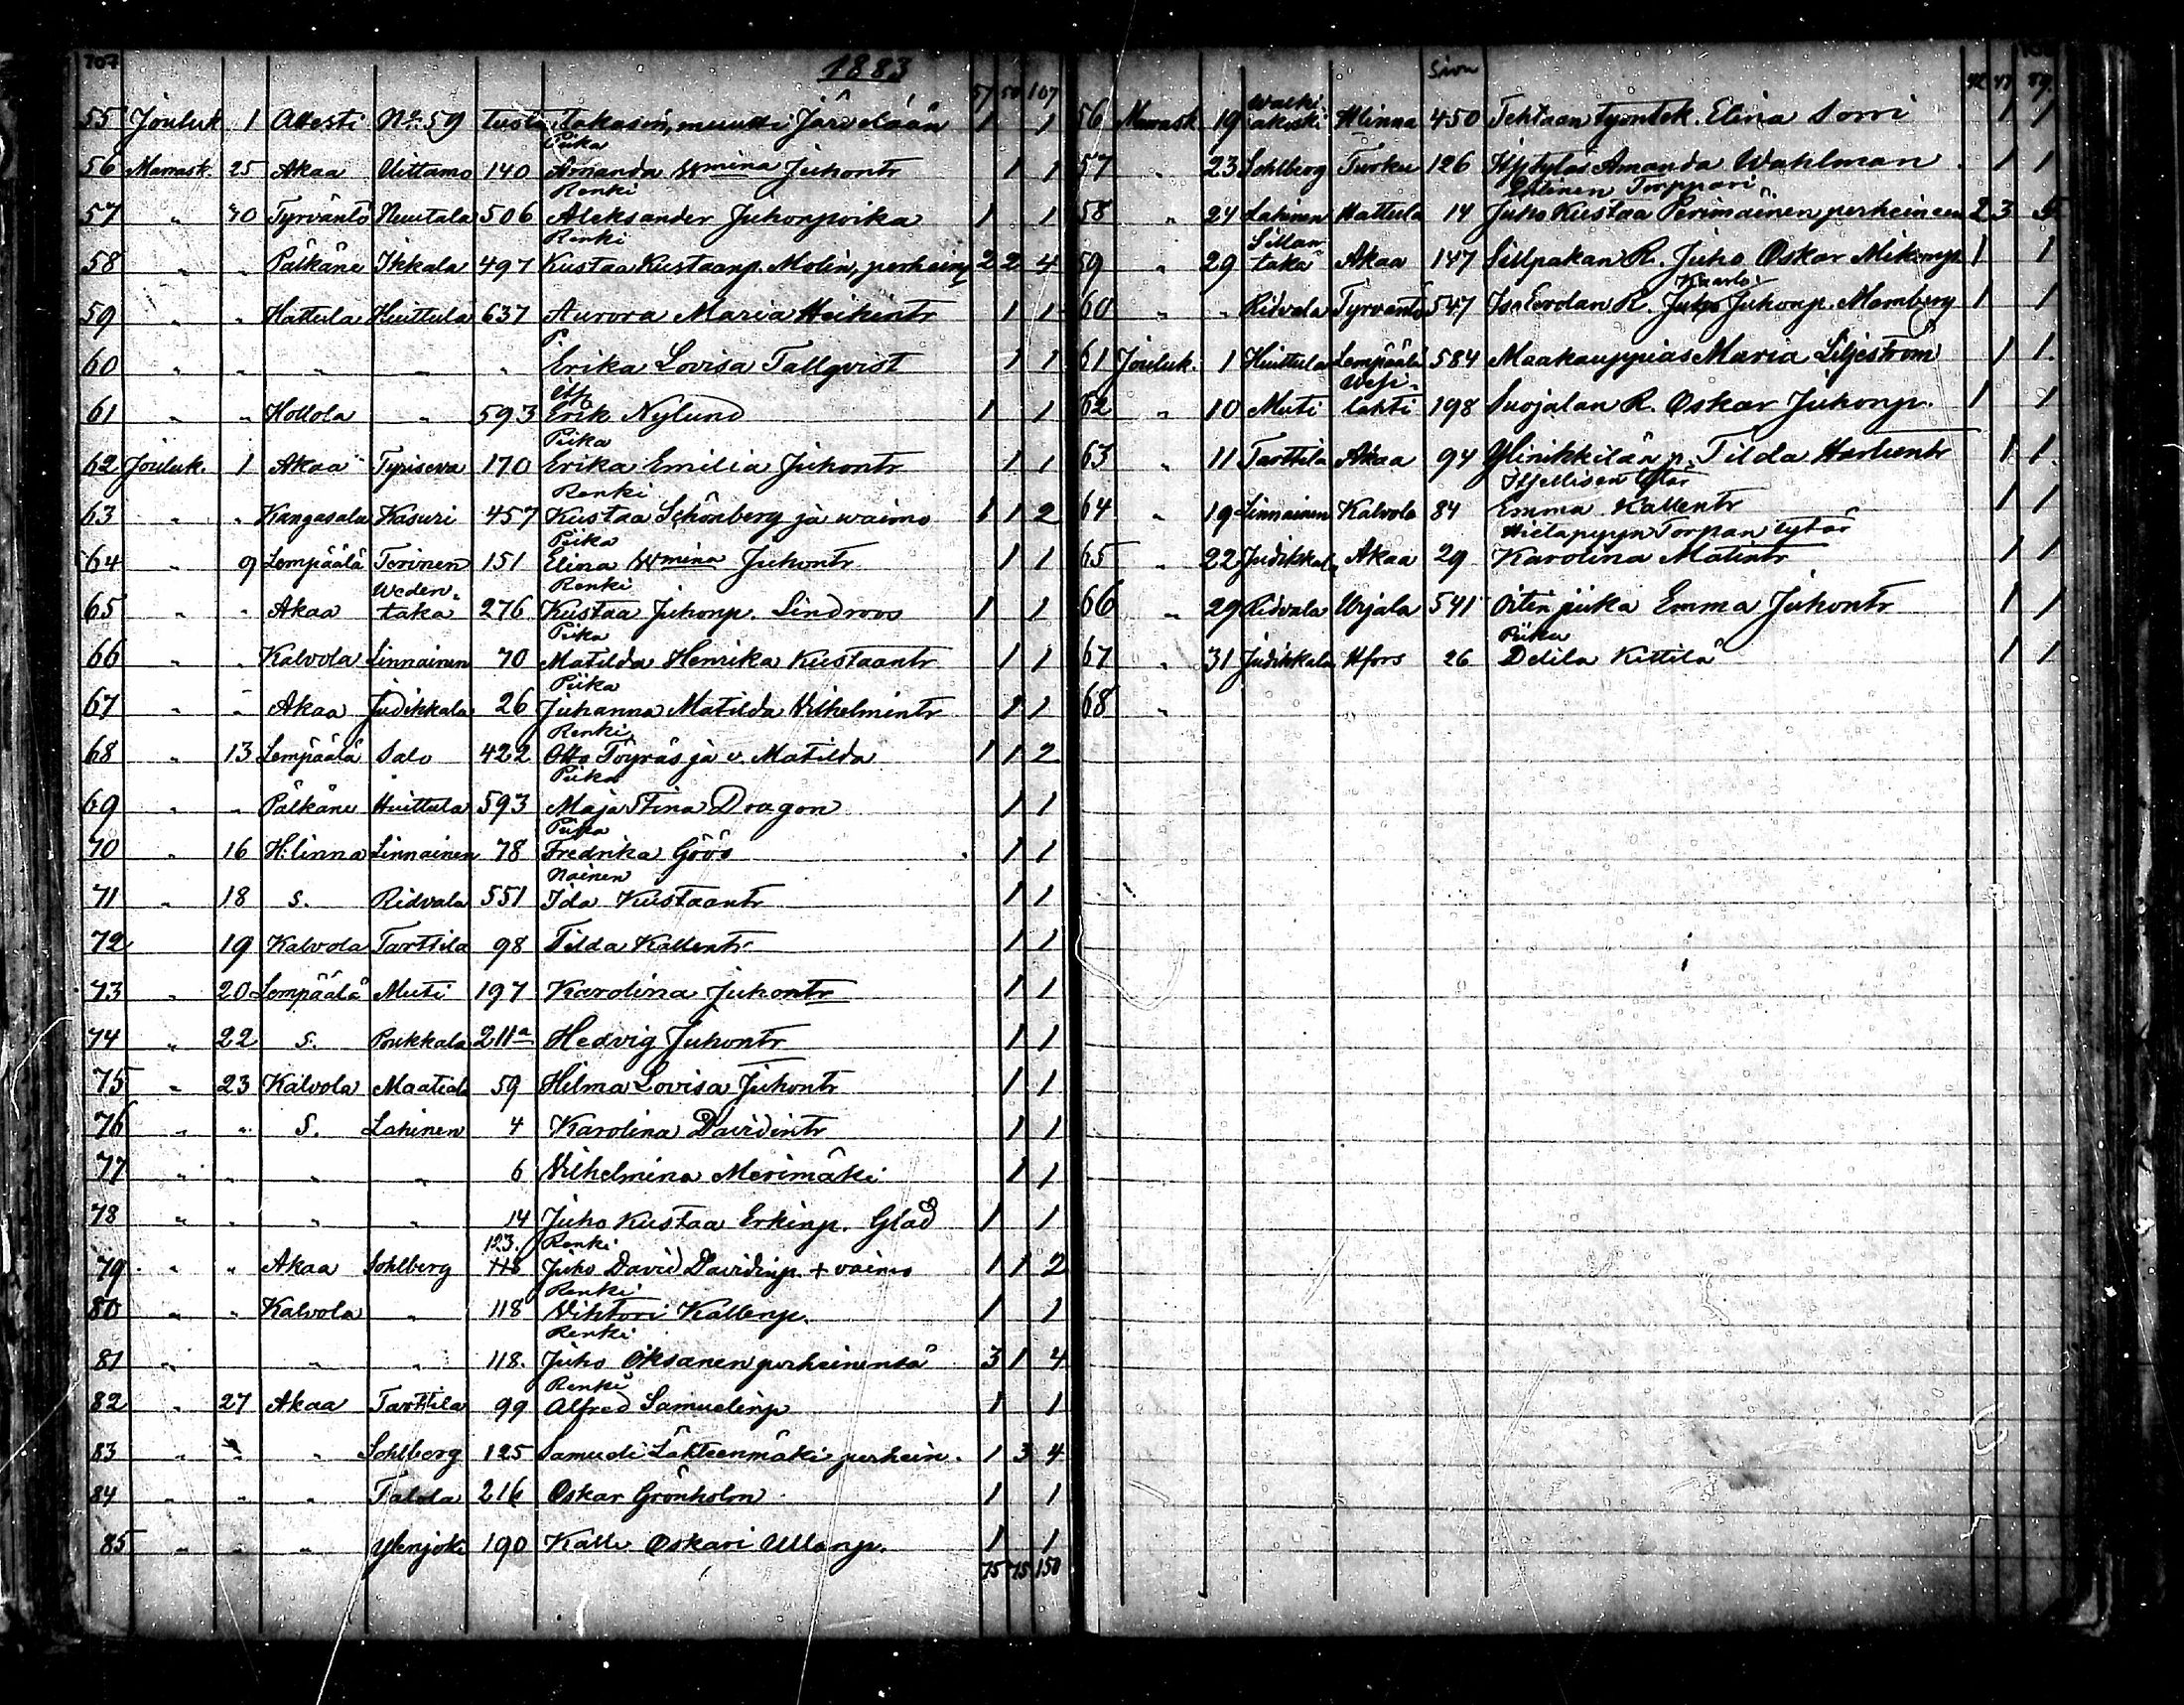 107
1883
57 50 107
55 Jouluk. 1 Attesti No 59 tusta takasin, muutti Järvelään 1 1
Piika
56 Marrask. 25 Akaa Uittamo 140 Amanda Wmina Juhontr 1 1
Renki
57 " 30 Tyrväntö Nuutala 506 Aleksander Juhonpoika 1 1
Renki
58 " " Pälkäne Ikkala 497 Kustaa Kustaanp. Molin, perhein 2 2 4
59 " " Hattula Huittula 637 Aurora Maria Heikintr 1 1
P.
60 " " " " " Erika Lovisa Tallqvist 1 1
61 " " Hollola " 593 Erik Nylund 1 1
Piika
62 Jouluk. 1 Akaa Tyriseva 170 Erika Emilia Juhontr 1 1
Renki
63 " " Kangasala Kasuri 457 Kustaa Schönberg ja waimo 1 1 2
Piika
64 " 9 Lempäälä Toivinen 151 Elina Wmina Juhontr 1 1
Weden- Renki
65 " " Akaa taka 276 Kustaa Juhonp. Lindroos 1 1
Piika
66 " " Kalvola Linnainen 70 Matilda Henrika Kustaantr 1 1
Piika
67 " " Akaa Judikkala 26 Juhanna Matilda Vilhelmintr 1 1
Renki
68 " 13 Lempäälä Salo 422 Otto Töyräs ja v. Matilda 1 1 2
Piika
69 " " Pälkäne Huittula 593 Maja Stina Dragon 1 1
Piika
70 " 16 H:linna Linnainen 78 Fredrika Göös 1 1
Nainen
71 " 18 S. Ridvala 551 Ida Kustaantr 1 1
72 19 Kalvola Tarttila 98 Tilda Kallentr 1 1
73 " 20 Lempäälä Muti 197 Karolina Juhontr 1 1
74 " 22 S. Pukkala 211a Hedvig Juhontr 1 1
75 " 23 Kalvola Maatiala 59 Hilma Lovisa Juhontr 1 1
76 " " S. Lahinen 4 Karolina Davidintr 1 1
77 " " " " 6 Vilhelmina Merimäki 1 1
78 " " " " 14 Juho Kustaa Erkinp. Glad 1 1
123. Renki
79 " " Akaa Sohlberg 118 Juho David Davidinp. + vaimo 1 1 2
Renki
80 " " Kalvola " 118 Vihtori Kallenp. 1 1
Renki
81 " " " 118. Juho Oksanen perheinensä 3 1 4
Renki
82 " 27 Akaa Tarttila 99 Alfred Samuelinp 1 1
83 " " " Sohlberg 125 Samueli Lähteenmäki perhein. 1 3 4
84 " " " Talola 216 Oskar Grönholm 1 1
85 " " " Ylenjoki 190 Kalle Oskari Ullanp. 1 1
75 75 150
Sivu
42 47 89.
Walki-
56 Marrask 19 akoski Hlinna 450 Tehtaan työntek. Elina Sorri 1 1
57 " 23 Sohlberg Turku 126 Amanda Wahlman 1 1
Torppari
58 " 24 Lahinen Hattula 14 Juho Kustaa Perimäinen perheineen 2 3 5
Sillan
59 " 29 taka Akaa 147 Sillpakan R. Juho Oskar Mikonp 1 1
Kaarlo
60 " " Ridvala Tyrväntö 547 Iso Eerolan R. Juho Juhonp. Mamberg 1 1
61 Jouluk. 1 Huittula Lempäälä 584 Maakauppias Maria Liljeström 1 1.
Wesi-
62 " 10 Muti lahti 198 Suojalan R. Oskar Juhonp. 1 1
63 " 11 Tarttila Akaa 94 Ylinikkilän p. Tilda 1 1.
Itsellisen tytär
64 " 19 Linnainen Kalvola 84 Emma Kallentr 1 1
Hietapypyn Torpan tytär
65 " 22 Judikkala Akaa 29 Karolina Matintr 1 1
66 " 29 Ridvala Urjala 541 piika Emma Juhontr 1 1
Piika
67 " 31 Judikkala Hfors 26 Delila Kittilä 1 1
68 "